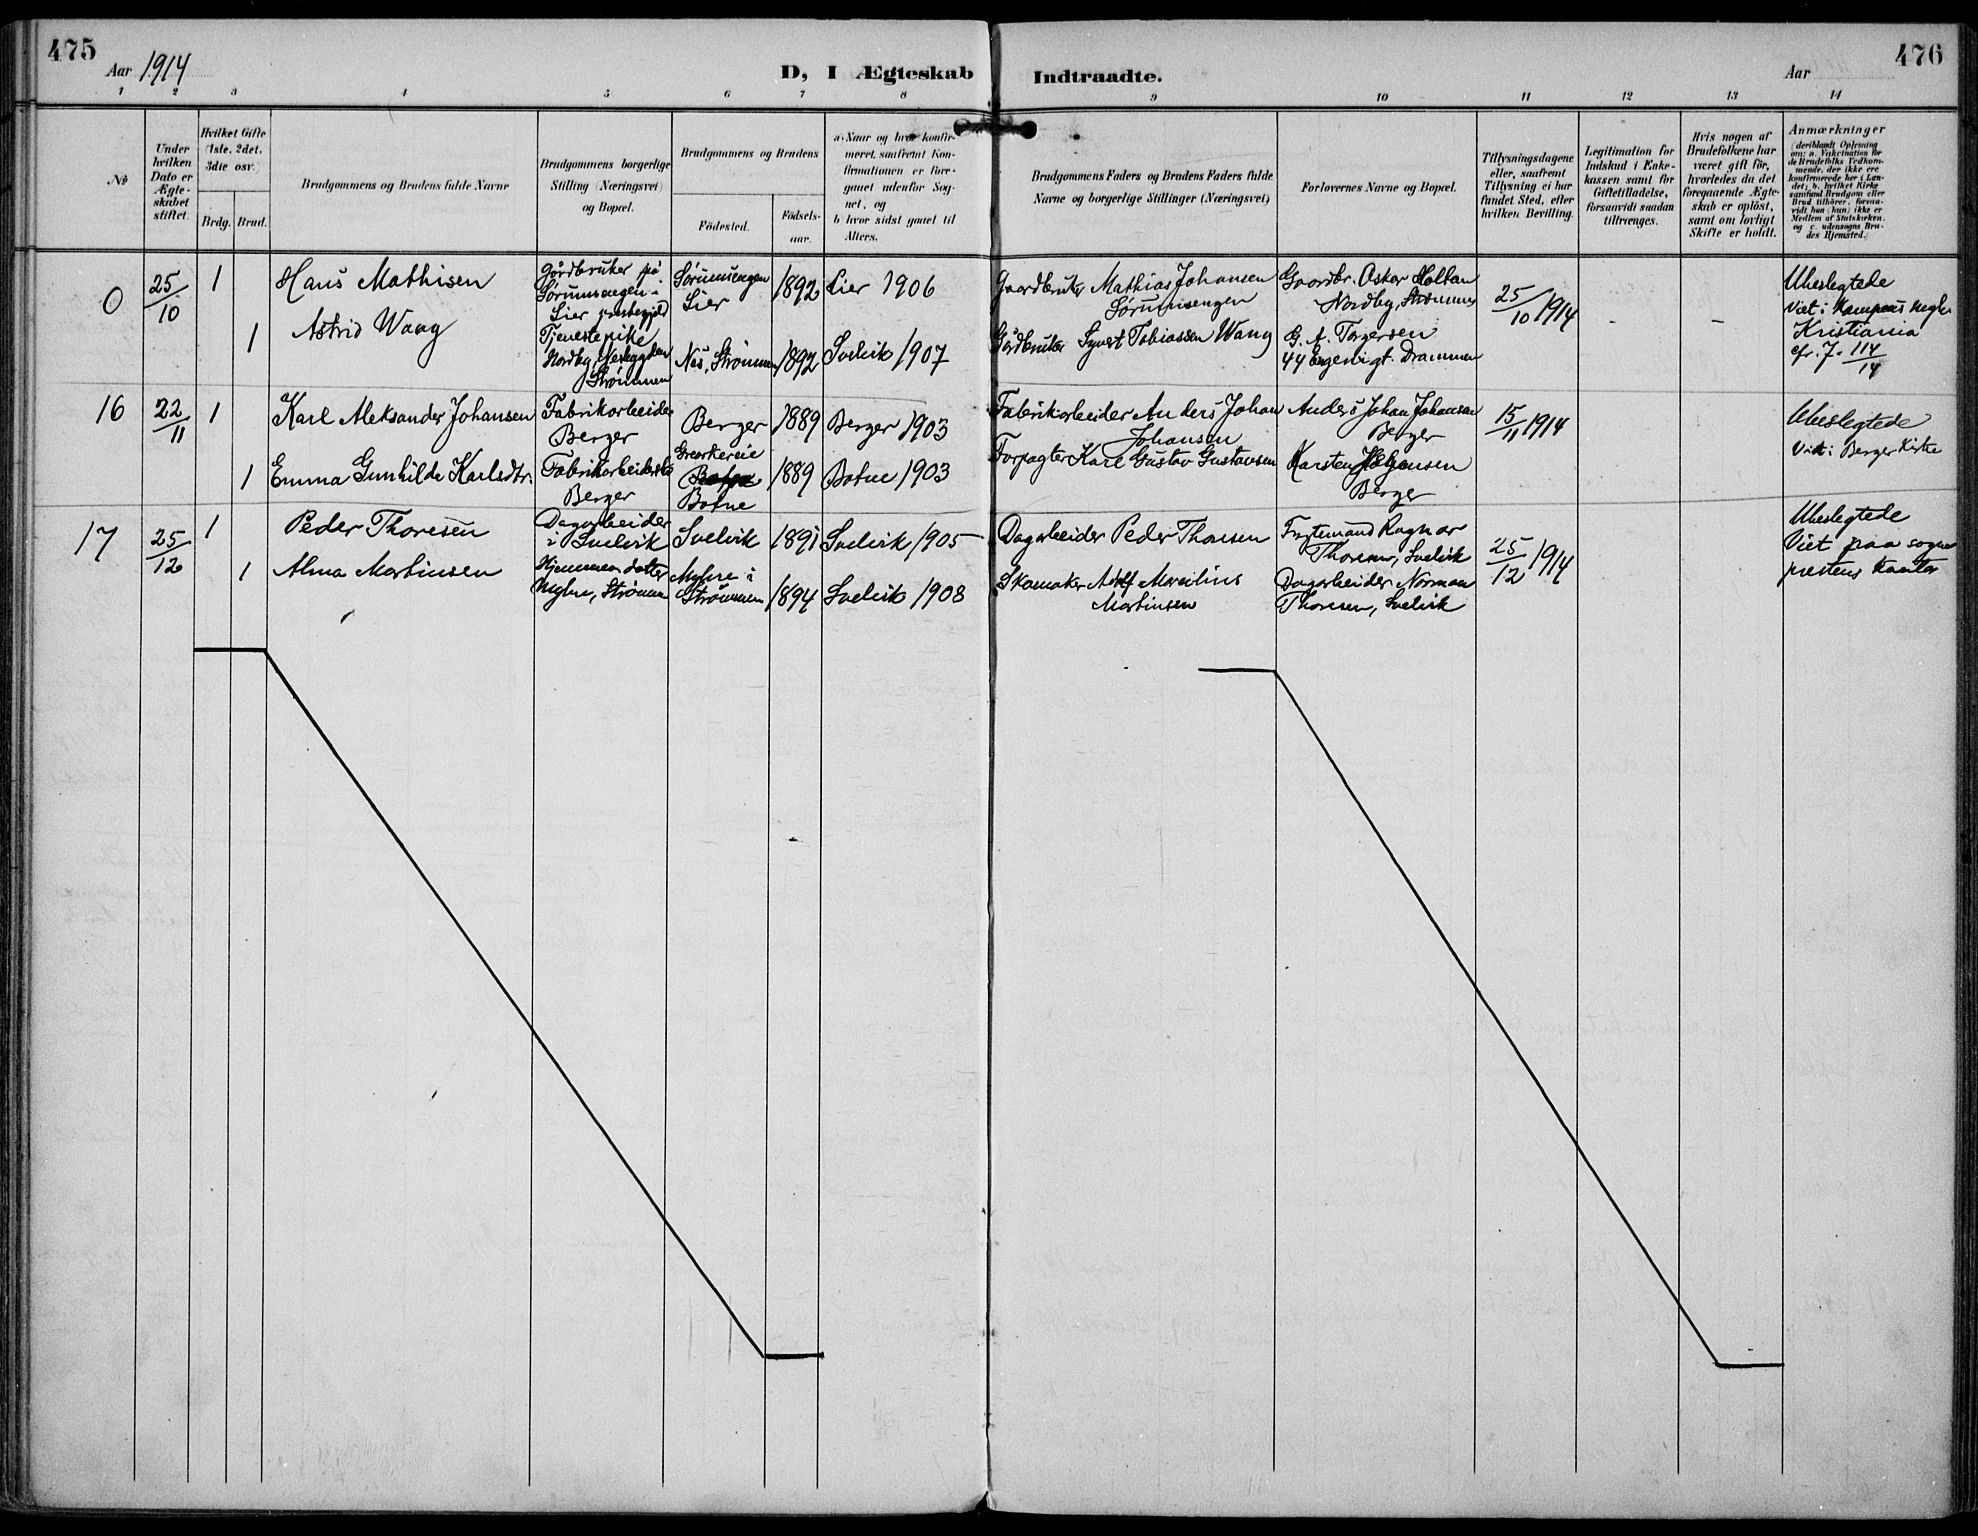 475
Aar 1914
D, I Ægteskab
Indtraadte.
Aar
476
1 2 3 4 5 6 7 8 9 10 11 12 13 14
No
Under
hvilken
Dato er
Ægte-
skabet
stiftet.
Hvilket Gifte
(1ste, 2det,
3die osv.)
Brdg. Brud.
Brudgommens og Brudens fulde Navne
Brudgommens borgerlige
Stilling (Næringsvei)
og Bopæl.
Brudgommens og Brudens
Födested.
Födsels-
aar.
a) Naar og hvor konfir-
meret, saafremt Kon-
firmationen er fore-
gaaet udenfor Sog-
net, og
b) hvor sidst gaaet til
Alters.
Brudgommens Faders og Brudens Faders fulde
Navne og borgerlige Stillinger (Næringsvei)
Forlovernes Navne og Bopæl.
Tillysningsdagene
eller, saafremt
Tillysning ei har
fundet Sted, efter
hvilken Bevilling.
Legitimation for
Indskud i Enke-
kassen samt for
Giftetilladelse,
forsaavidt saadan
tiltrænges.
Hvis nogen af
Brudefolkene har
været gift för,
hvorledes da det
foregaaende Ægte-
skab er oplöst,
samt om lovligt
Skifte er holdt.
Anmærkninger
(deriblandt Oplysning
om: a. Vakcination for
de Brudefolks Vedkom-
mende, der ikke ere
konfirmerede her i Lan-
det; b. hvilket Kirke
samfund Brudgom eller
Brud tilhörer, forsaa-
vidt han (hun) ikke er
Medlem af Statskirken.
og c. udensogns Bru-
des Hjemsted.)
0
25/10
1
Hans Mathisen
Gårdbruker på
Sørumsengen i
Lier prestegjeld
Sørumsengen
Lier
1892
Lier 1906
Gaardbruker Mathias Johansen
Sørumsengen
Gaardbr. Oskar Holtan
Nordby, Strømmen
25/10 1914
Ubeslegtede
Viet i Kampens
Kristiania
cfr. J. 114/14
1
Astrid Waag
Tjenestepike
Nordby, Nesbygden
Strømmen
Nes, Strømmen
1892
Svelvik 1907
Gårdbruker Syvert Tobiassen Wang
G. A. Torgersen
44 Engenigt. Drammen
16
22/11
1
Karl Aleksander Johansen
Fabrikarbeider
Berger
Berger
1889
Berger 1903
Fabrikarbeider Anders Johan
Johansen
Anders Johan Johansen
Berger
15/11 1914
Ubeslegtede
Viet i Berger Kirke
1
Emma Gunhilde Karlsdtr.
Fabrikarbeiderske
Berger
Botne
1889
Botne 1903
Forpagter Karl Gustav Gustavsen
Karsten Helgesen
Berger
17
25/12
1
Peder Thoresen
Dagarbeider
i Svelvik
Svelvik
1891
Svelvik 1905
Dagarbeider Peder Thoresen
Fragtemand Ragnar
Thoresen, Svelvik
25/12 1914
Ubeslegtede
Viet paa sogne
prestens kontor
1
Alma Martinsen
Hjemmev. datter
Myhre, Strømmen
Myhre i
Strømmen
1894
Svelvik 1908
Skomaker Adolf Marcilius
Martinsen
Dagarbeider Norman
Thoresen, Svelvik